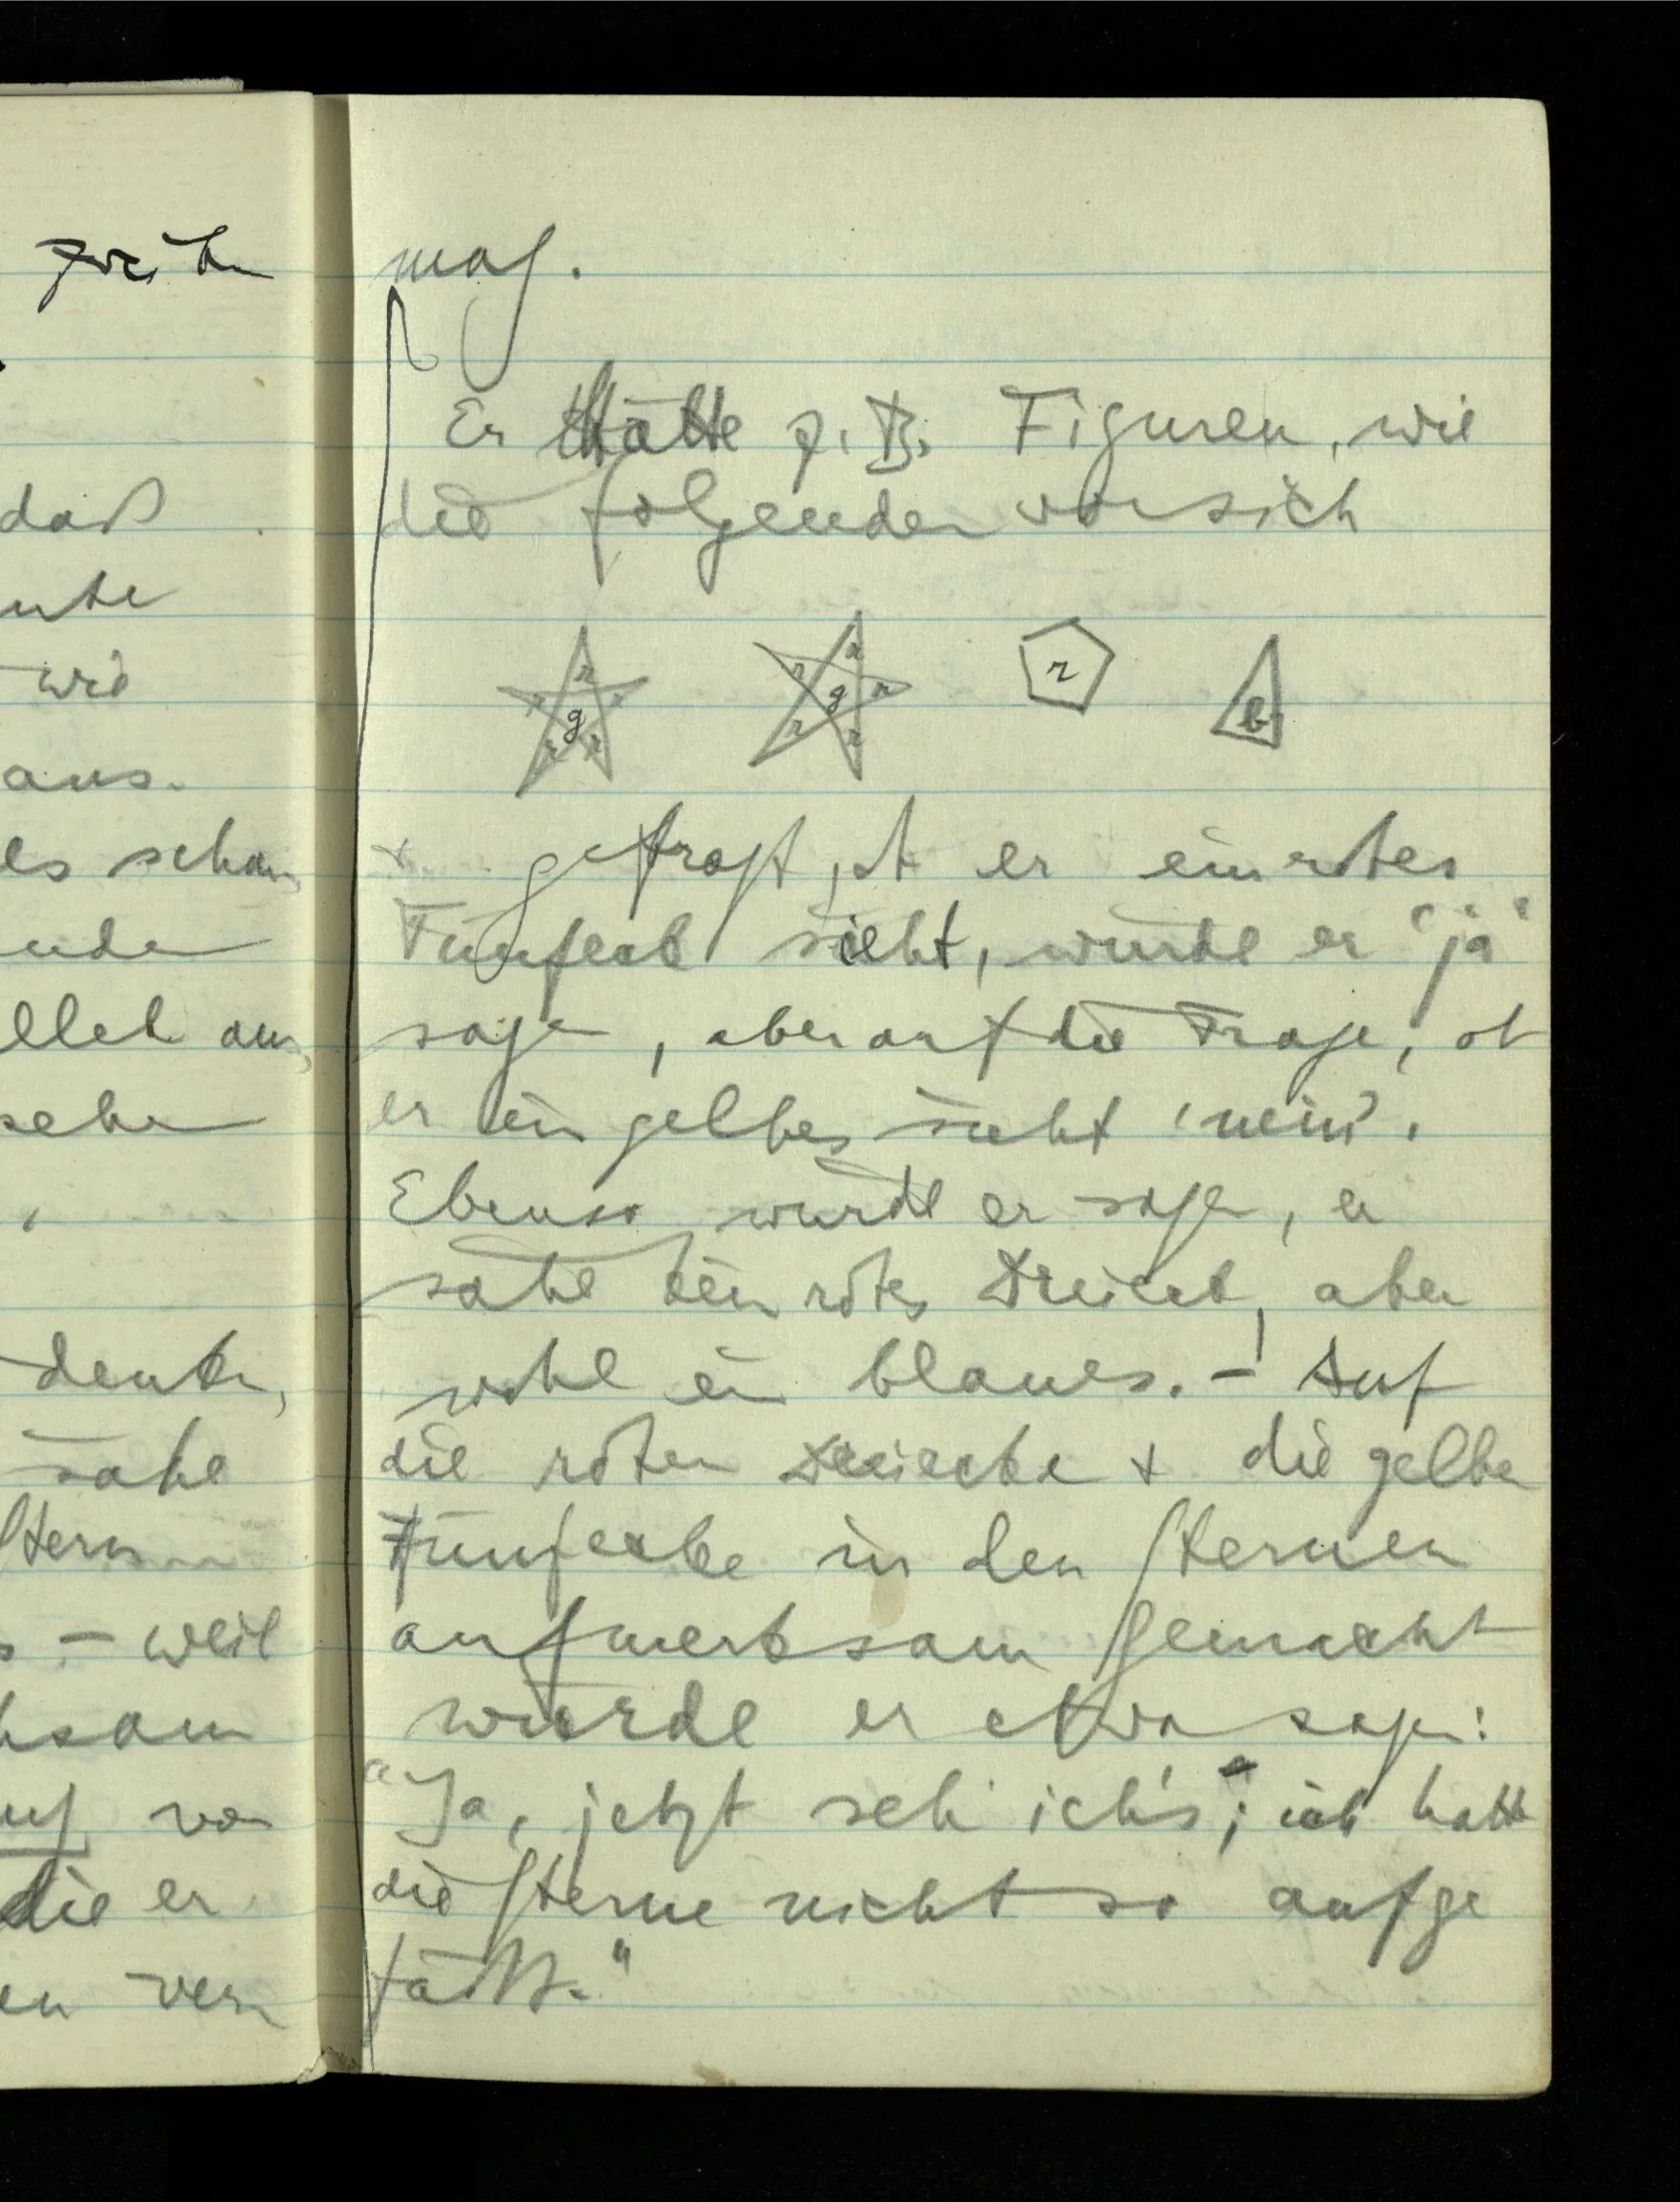 daß
wie
aus.
es schon
denken,
sähe
Stern
– weil
die er
mag.
Er hätte z.B. Figuren, wie
die folgenden vor sich
r r r r r g
r r r r r g
r
b
& gefragt, ob er ein rotes
Fünfeck sieht, würde er "ja"
sagen, aber auf die Frage, ob
er ein gelbes sieht 'nein'.
Ebenso würde er sagen, er
sähe kein rotes Dreieck, aber
wohl ein blaues. – Auf
die roten Dreiecke & die gelben
Fünfecke in den Sternen
aufmerksam gemacht
würde er etwa sagen:
"Ja, jetzt seh ich's; ich hatte
die Sterne nicht so aufge
faßt."